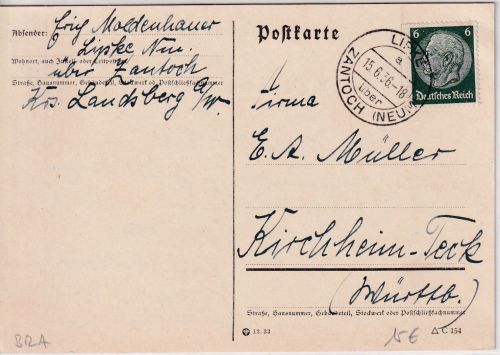 Absender: Erich Moldenhauer
Lipke Nm.
Wohnort, auch Zustell- oder Leitpostamt
über Zantoch
Straße, Hausnummer, Gebäudeteil, Stockwerk oder Postschließfachnummer
Krs. Landsberg a/W.
Postkarte
6 6
Deutsches Reich
LIPKE
a
15.6.36.-18
über
ZANTOCH (NEUM)
Firma
E. A. Müller
Kirchheim-Teck
(Württb.)
Straße, Hausnummer, Gebäudeteil, Stockwerk oder Postschließfachnummer
12.33
△ C 154
BRA
15€